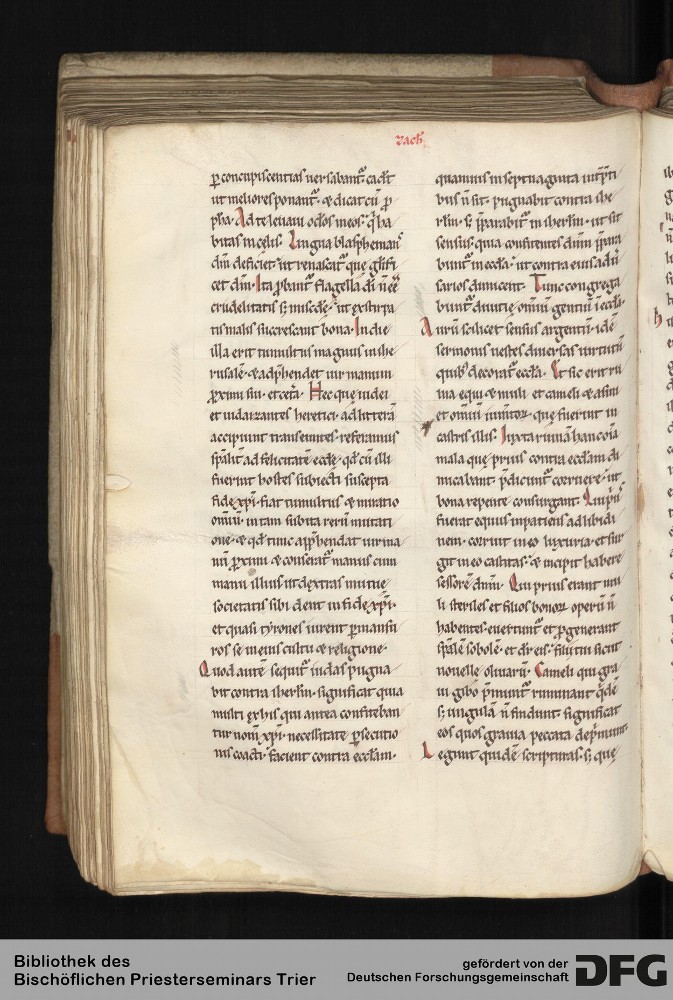 zach
p concupiscentias uersabant². cadt
ut meliores ponant². & dicat cū p
pha. Ad te leuaui oclos meos. q̇ ha
bitas in celis. Lingua blasphemant²
dm̄ deficiet. ut renascat² que glifi
cet dm̄. Ita pbant² flagella dī n̄ eē
crudelitatis s; miscdē. ut exstirpa
tis malis succrescant bona. In die
illa erit tumultus magnus in ihe
rusalē. & adphendet uir manum
pximi sui. et cetā. Hec que iudei
et iudaizantes heretici. ad litterā
accipiunt transeuntes. referamus
spālit ad felicitatē eccłe. qđ cū illi
fuerint hostes subiecti suscepta
fide xpī. fiat tumultus & mutatio
omīū. in tam subita rerū mutati
one. & qđ tunc apphendat uir ma
nū pximi & conserat² manus cum
manu illius ut dextras mutue
societatis sibi dent in fide xpī.
et quasi tyrones iurent pmansu
ros se in eius cultu & religione.
Quod autē sequit² iudas pugna
bit contra iherlm̄. significat quia
multi ex his qui antea confiteban
tur nom̄ xpī. necessitate psecutio
nis coacti. facient contra eccłam.
quamuis in septuaginta intpti
bus n̄ sit. pugnabit contra ihe
rlm̄. s; pparabit² in iherlm̄. ut sit
sensus. quia confitentes dnm̄ ppara
bunt² in eccła. ut contra eius adū
sarios dimicent. Tunc congrega
bunt² diuitię omniū gentiū ī eccła.
Aurū scilicet sensus argentū. idē
sermonis uestes diuersas uirtutū
quib; decorat² eccła. Et sic erit ru
ina equi & muli et cameli & asini
et omniū iumtoꝝ. que fuerint in
castris illis. Iuxta ruinā hanc oīa
mala que prius contra eccłam di
micabant. pdicunt² corruere. ut
bona repente consurgant. Qui pri²
fuerat equus impatiens ad libidi
nem. corruit in eo luxuria. et sur
git in eo castitas. & incipit habere
sessorē dnm̄. Qui prius erant mu
li steriles et filios bonoꝝ operū n̄
habentes. euertunt² et pgenerant
spālē sobolē. et dr̄ eis. filii tui sicut
nouelle oliuarū. Cameli qui gra
ui gibo pmunt² ruminant q̇dē
s; ungulā n̄ findunt. significat
eos quos grauia peccata depmunt.
Legunt quidē scripturas. s; que
Bibliothek des
Bischöflichen Priesterseminars Trier
gefördert von der
Deutschen Forschungsgemeinschaft
DFG